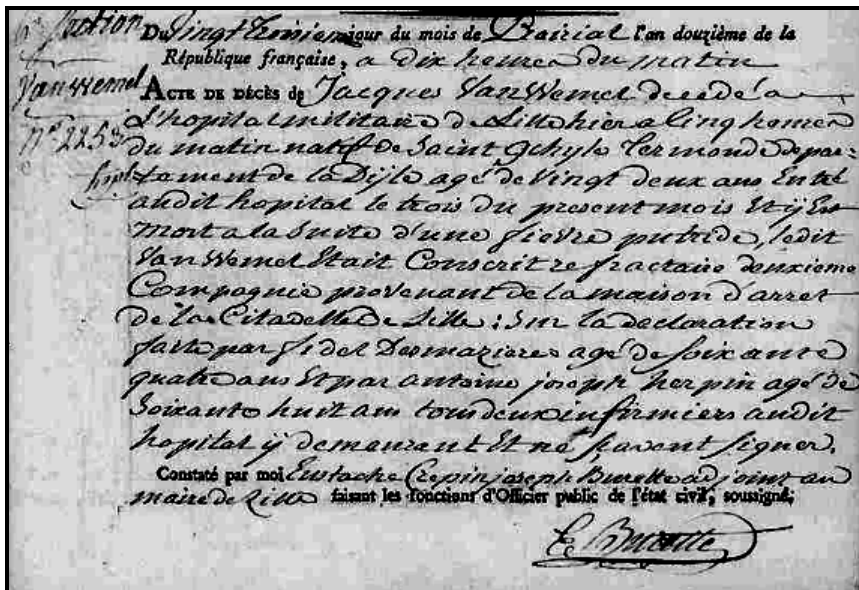 6e Section
Van Wemel
n° 2253
hopl
Du Vingt troisieme jour du mois de Prairial l'an douzième de la
République française, a dix heures du matin
ACTE DE DÉCÈS de Jacques Van Wemel decedé a
L'hopital militaire de Lille hier a Cinq heures
du matin natif de Saint Gehyle Termonde depar-
tament de la Dyle agé de Vingt deux ans Entré
audit hopital le trois du present mois Et ÿ Est
mort a la Suite d'une fievre putride, ledit
Van Wemel Etait Conscrit refractaire deuxieme
Compagnie provenant de la maison d'arret
de la Citadelle de Lille : Sur la declaration
faite par fidel Desmazieres agé de Soixante
quatre ans Et par antoine joseph herpin agé de
Soixante huit ans tous deux infirmiers audit
hopital ÿ demeurant Et ne scavent signer.
Constaté par moi Eustache Crepin joseph Burette adjoint au
maire de Lille faisant les fonctions d'Officier public de l'état civil, soussigné;
Burette